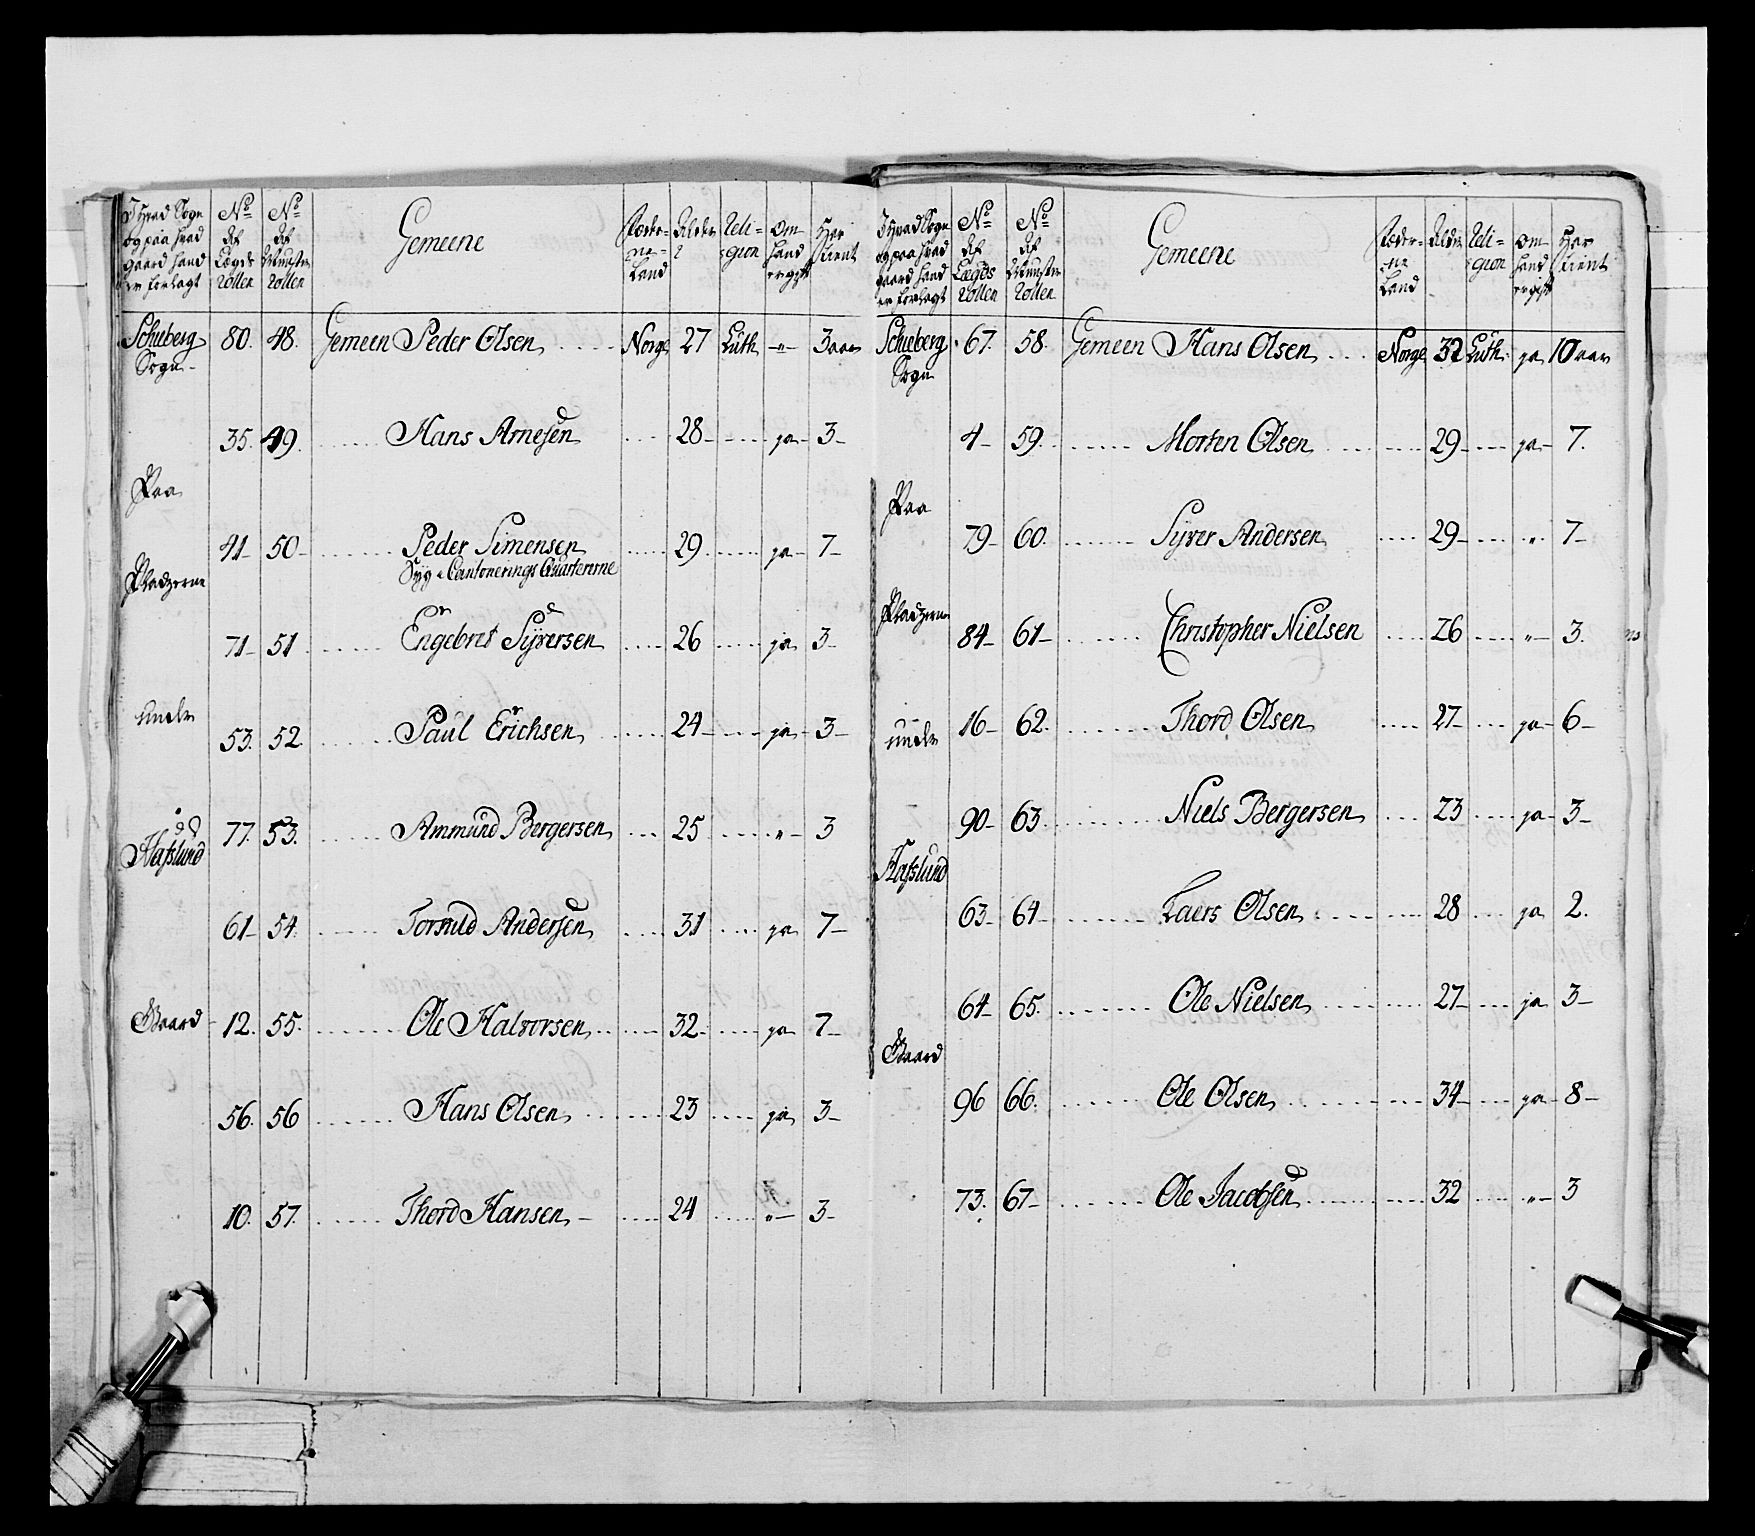 I Hvad Sogn og paa hvad gaard hand er forlagt | No. Af Lægds Rollen | No. Af Munster Rollen | Gemeene | Fæder-ne-Land | Alder | Reli-gion | Om hand er gift | Har Tient
Schieberg Sogn | 80. | 48. | Gemeen Peder Olsen | Norge | 27 | Luth. | " | 3 aar
35. | 49. | Hans Arnesen | 28 | ja | 3
Paa
41 | 50 | Peder Simensen | 29 | ja | 7
Syg i Cantonerings Quartererne
Pladzerne
71 | 51 | Engebret Syversen | 26 | ja | 3
under
53. | 52 | Paul Erichsen | 24 | ja | 3
77. | 53. | Ammund Bergersen | 25 | " | 3
Hafslund
61 | 54. | Andersen | 31 | ja | 7
Gaard | 12. | 55. | Ole Halvorsen | 32 | ja | 7
56. | 56 | Hans Olsen | 23 | ja | 3
10. | 57. | Thord Hansen | 24 | " | 3
I Hvad Sogn og paa hvad gaard hand er forlagt | No. Af Lægds Rollen | No. Af Munster Rollen | Gemeene | Fæder-ne Land | Alder | Reli-gion | Om hand er gift | Har Tient
Schieberg Sogn | 67. | 58. | Gemeen Hans Olsen | Norge | 32 | Luth. | ja | 10 aar
4 | 59. | Morten Olsen | 29 | ja | 7.
Paa
79 | 60. | Syver Andersen | 29 | " | 7
Pladzerne
84 | 61 | Christopher Nielsen | 26 | " | 3.
under
16 | 62. | Thord Olsen | 27 | ja | 6
90 | 63. | Niels Bergersen | 23 | ja | 3
Hafslund
63 | 64 | Laers Olsen | 28 | ja | 2.
64 | 65. | Ole Nielsen | 27 | ja | 3
Gaard
96 | 66. | Ole Olsen | 34 | ja | 8
73. | 67 | Ole Jacobsen | 32 | " | 3